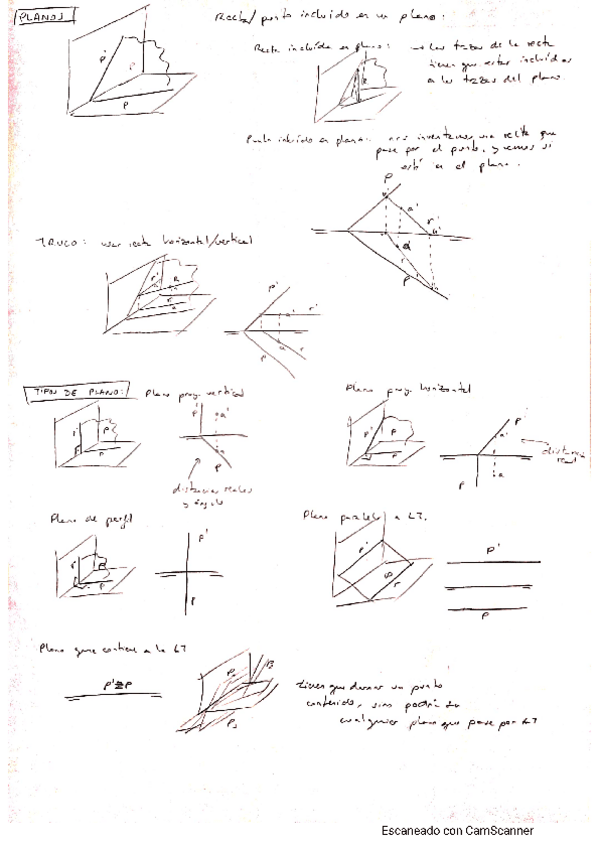 PLANOS
Recta/punto incluido en un plano:
Recta incluida en plano: → Las trazas de la recta
tienen que estar incluidas
a las trazas del plano.
Punto incluido en plano: nos inventamos una recta que
pase por el punto, y vemos si
está en el plano.
TRUCO: usar recta horizontal/vertical
TIPOS DE PLANO:
Plano proy. vertical
Plano proy. horizontal
distancias reales
y ángulo
distancia
real
Plano de perfil
Plano paralelo a LT.
Plano que contiene a la LT
p'≡p
tienen que darnos un punto
contenido, sino podría ser
cualquier plano que pase por LT
Escaneado con CamScanner